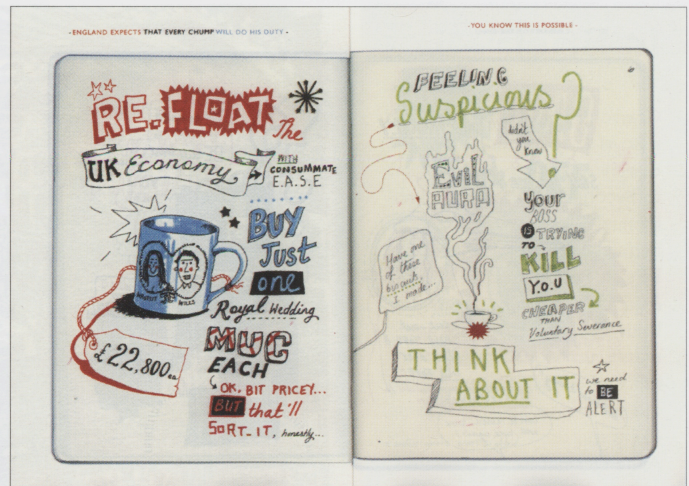 - ENGLAND EXPECTS THAT EVERY CHUMP WILL DO HIS DUTY -
RE-FLOAT The
UK Economy
WITH
CONSUMMATE
E.A.S.E
BUY
Just
one
Royal Wedding
MUG
EACH
WILLS
£22,800 ea
OK, BIT PRICEY...
BUT that'll
SORT-IT, honestly...
- YOU KNOW THIS IS POSSIBLE -
FEELING
Suspicious?
didn't
you
know
EVIL
AURA
Your
BOSS
IS TRYING
TO
KILL
Y.O.U
CHEAPER
THAN
Voluntary Severance
Have one
of these
I made...
THINK
ABOUT IT
we need
to BE
ALERT